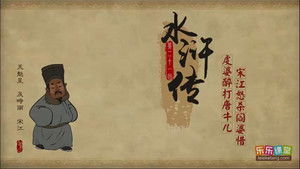 水浒传
第二十一回
宋江怒杀阎婆惜
虔婆醉打唐牛儿
天魁星 及時雨 宋江
乐乐课堂
leleketang.com